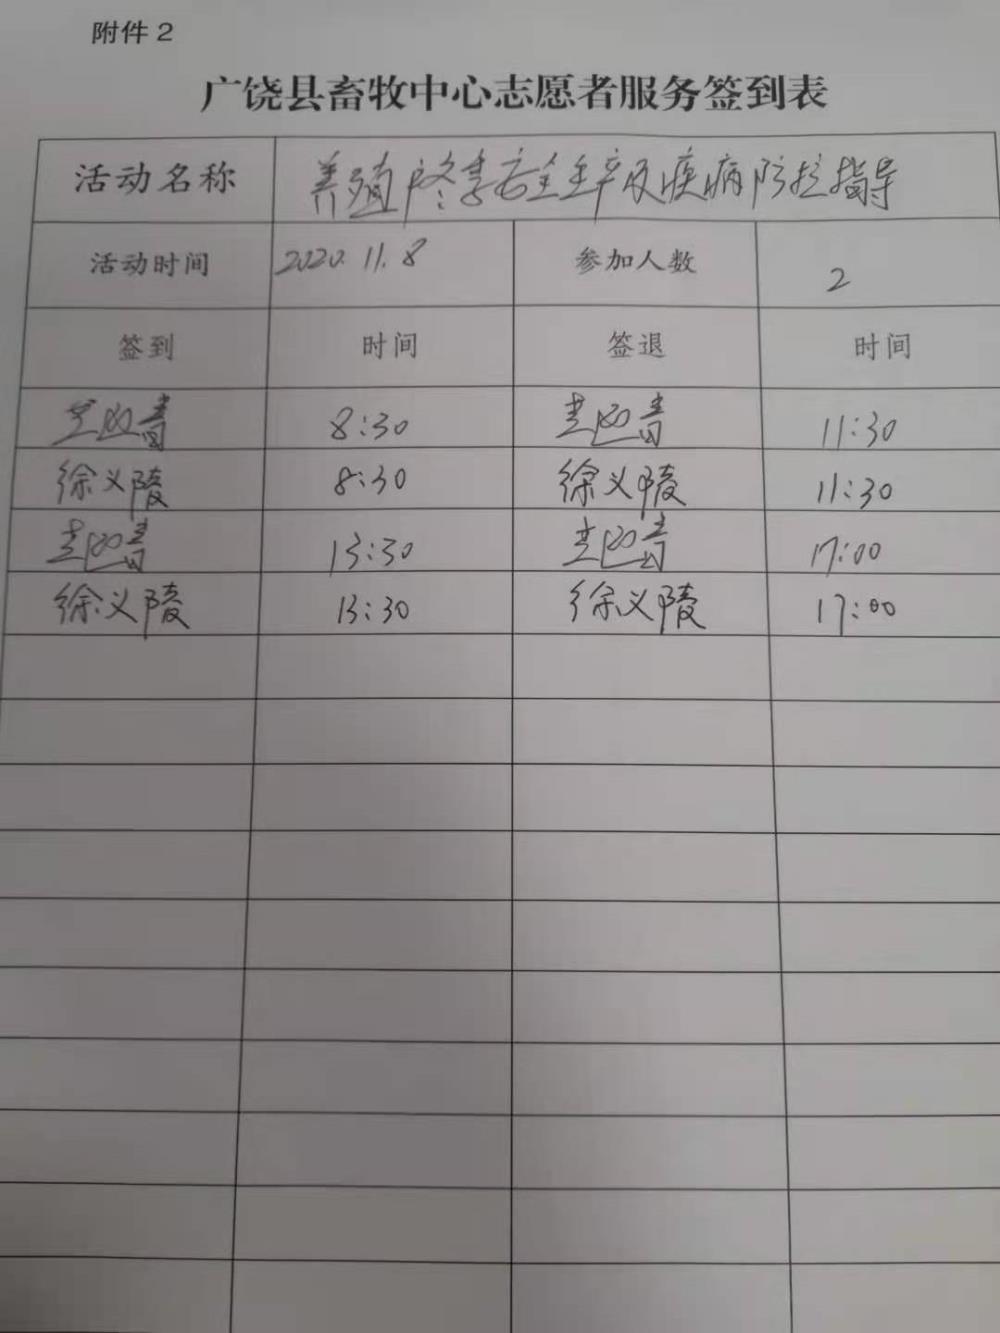 附件2
广饶县畜牧中心志愿者服务签到表
活动名称 养殖户冬季安全生产及疾病防控指导
活动时间 2020.11.8 参加人数 2
签到 时间 签退 时间
8:30 11:30
徐义陵 8:30 徐义陵 11:30
13:30 17:00
徐义陵 13:30 徐义陵 17:00